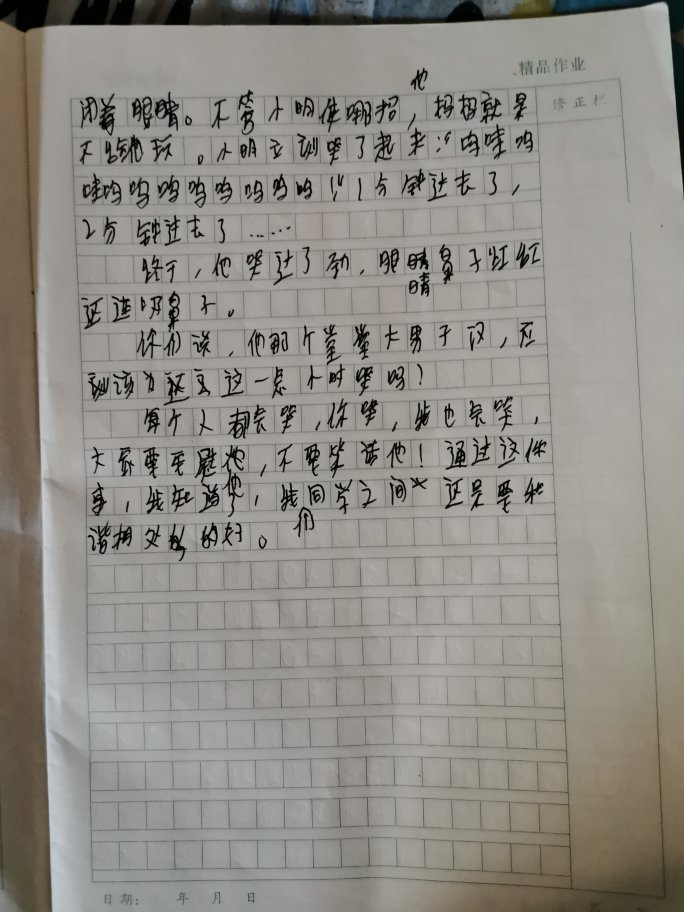 精品作业
修正栏
他
闭着眼睛。不管小明使哪招，妈妈就是
不跟他玩。小明立刻哭了起来：“呜哇呜
哇呜呜呜呜呜呜呜呜！”1分钟过去了，
2分钟过去了……
终于，他哭过了劲，眼睛鼻子红红
睛
还连吸鼻子。
你们说，他那个堂堂大男子汉，应
该为这这一点小时哭吗？
每个人都会哭，你哭，我也会哭，
大家要安慰他，不要笑话他！通过这件
事，我知道了，我同学之间 还是要和
他
们
谐相处的好。
日期： 年 月 日